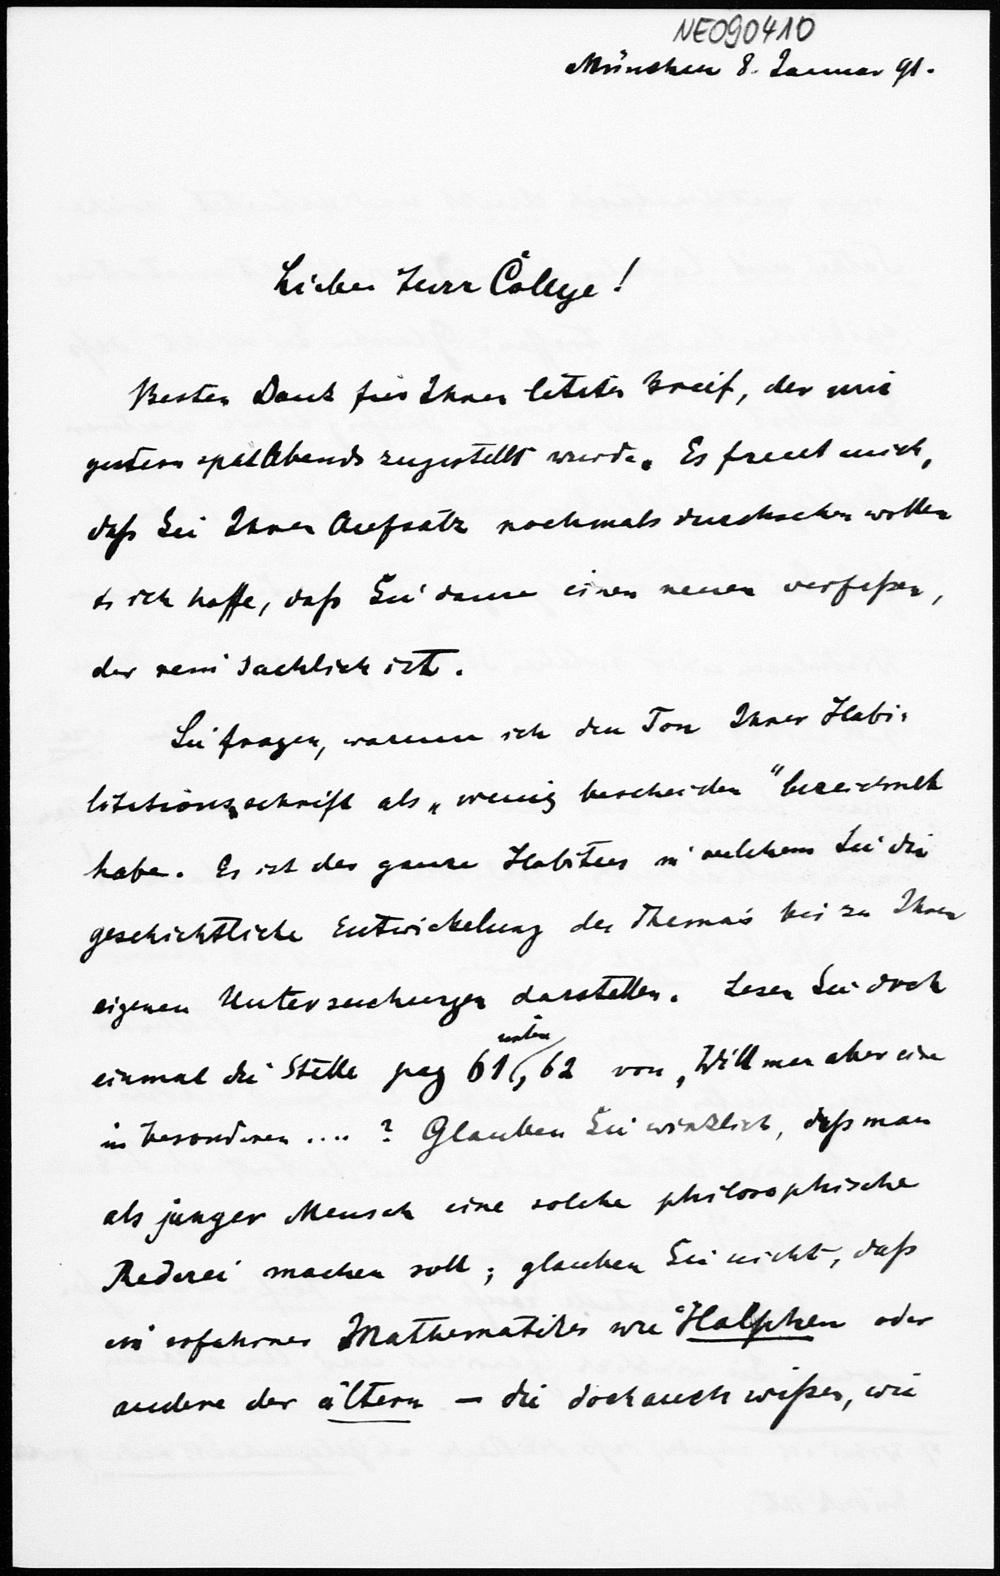 NE090410
München 8. Januar 91.
Lieber Herr College!
Besten Dank für Ihren letzten Breif, der mir
gestern spät Abends zugestellt wurde. Es freut mich,
daß Sie Ihren Aufsatz nochmals durchsehen wollen
& ich hoffe, daß Sie dann einen neuen verfaßen,
der rein sachlich ist.
Sie fragen, warum ich den Ton Ihrer Habi-
litationsschrift als „wenig bescheiden" bezeichnet
habe. Es ist der ganze Habitus in welchem Sie die
geschichtliche Entwickelung des Themas bis zu Ihren
eigenen Untersuchungen darstellen. Lesen Sie doch
einmal die Stelle pag 61 unten, 62 von „Will man aber eine
in besonderen .... ? Glauben Sie wirklich, daß man
als junger Mensch eine solche philosophische
Rederei machen soll; glauben Sie nicht, daß
ein erfahrner Mathematiker wie Halphen oder
andere der ältern – die doch auch wißen, wie